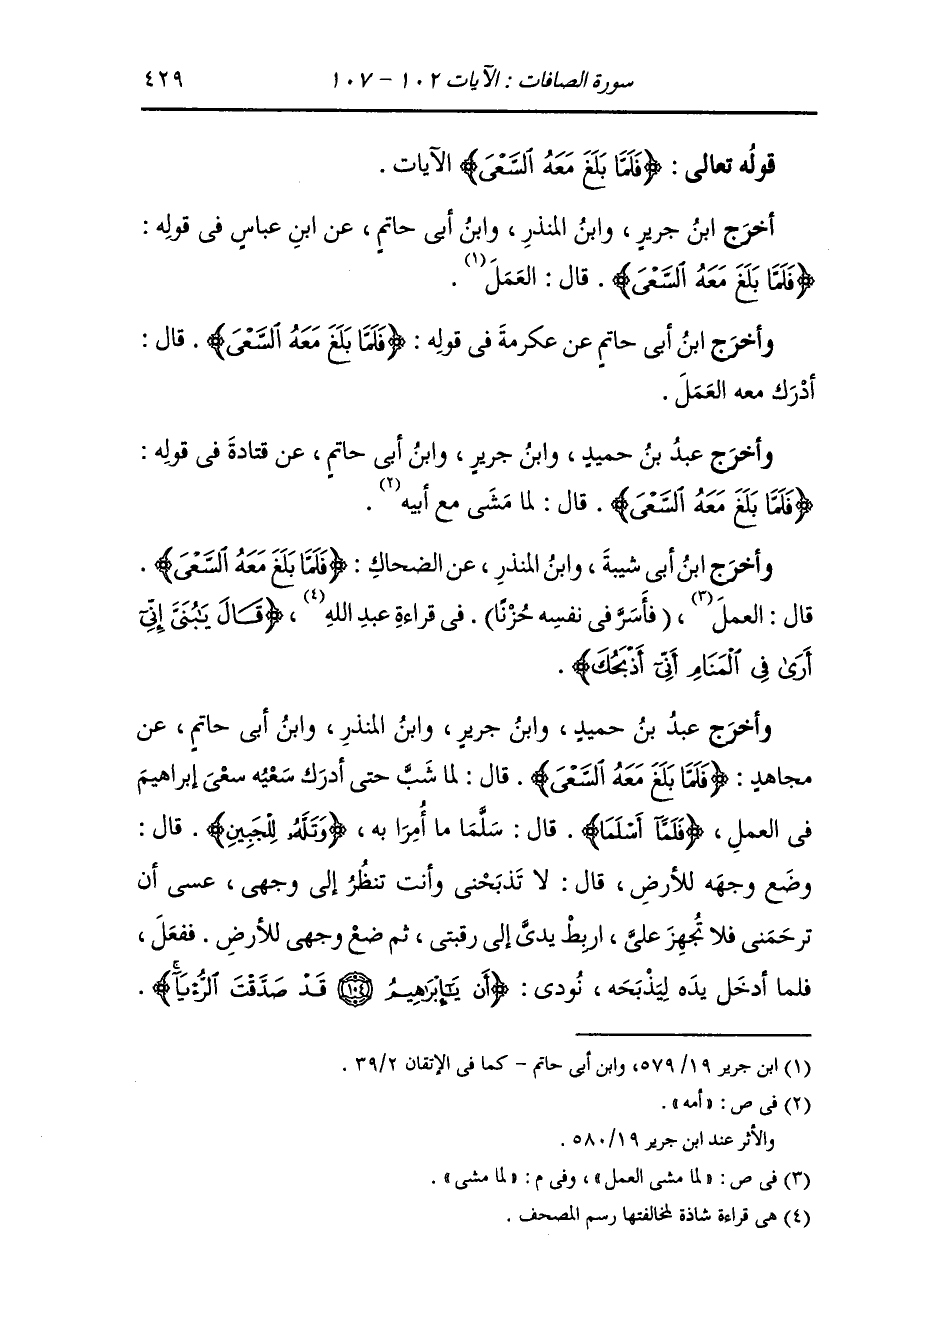 سورة الصافات : الآيات ١٠٢ - ١٠٧ ٤٢٩
قولُه تعالى : ﴿فَلَمَّا بَلَغَ مَعَهُ ٱلسَّعْىَ﴾ الآيات .
أخرَج ابنُ جريرٍ ، وابنُ المنذرِ ، وابنُ أبى حاتمٍ ، عن ابنِ عباسٍ فى قولِه :
﴿فَلَمَّا بَلَغَ مَعَهُ ٱلسَّعْىَ﴾ . قال : العَمَلَ (١) .
وأخرَج ابنُ أبى حاتمٍ عن عكرمةَ فى قولِه : ﴿فَلَمَّا بَلَغَ مَعَهُ ٱلسَّعْىَ﴾ . قال :
أدْرَك معه العَمَلَ .
وأخرَج عبدُ بنُ حميدٍ ، وابنُ جريرٍ ، وابنُ أبى حاتمٍ ، عن قتادةَ فى قولِه :
﴿فَلَمَّا بَلَغَ مَعَهُ ٱلسَّعْىَ﴾ . قال : لما مَشَى مع أبيه (٢) .
وأخرَج ابنُ أبى شيبةَ ، وابنُ المنذرِ ، عن الضحاكِ : ﴿فَلَمَّا بَلَغَ مَعَهُ ٱلسَّعْىَ﴾ .
قال : العملَ (٣) ، ( فأَسَرَّ فى نفسِه حُزْنًا ) . فى قراءةِ عبدِ اللهِ (٤) ، ﴿قَالَ يَٰبُنَىَّ إِنِّىٓ
أَرَىٰ فِى ٱلْمَنَامِ أَنِّىٓ أَذْبَحُكَ﴾ .
وأخرَج عبدُ بنُ حميدٍ ، وابنُ جريرٍ ، وابنُ المنذرِ ، وابنُ أبى حاتمٍ ، عن
مجاهدٍ : ﴿فَلَمَّا بَلَغَ مَعَهُ ٱلسَّعْىَ﴾ . قال : لما شَبَّ حتى أدرَك سَعْيُه سعْىَ إبراهيمَ
فى العملِ ، ﴿فَلَمَّآ أَسْلَمَا﴾ . قال : سَلَّمَا ما أُمِرَا به ، ﴿وَتَلَّهُۥ لِلْجَبِينِ﴾ . قال :
وضَع وجهَه للأرضِ ، قال : لا تَذبَحْنى وأنت تنظُرُ إلى وجهى ، عسى أن
ترحَمَنى فلا تُجهِزَ علىَّ ، اربِطْ يدىَّ إلى رقبتى ، ثم ضعْ وجهى للأرضِ . ففعَلَ ،
فلما أدخَل يدَه لِيَذْبَحَه ، نُودى : ﴿أَن يَٰٓإِبْرَٰهِيمُ ١٠٤ قَدْ صَدَّقْتَ ٱلرُّءْيَآ﴾ .
(١) ابن جرير ١٩/ ٥٧٩، وابن أبى حاتم - كما فى الإتقان ٣٩/٢ .
(٢) فى ص : « أمه » .
والأثر عند ابن جرير ٥٨٠/١٩ .
(٣) فى ص : « لما مشى العمل » ، وفى م : « لما مشى » .
(٤) هى قراءة شاذة لمخالفتها رسم المصحف .